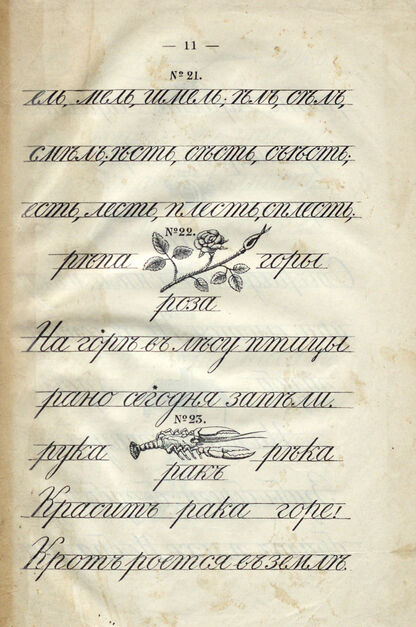 — 11 —
№ 21.
ель, мель, шмель; ѣлъ, сѣлъ,
смѣлъ; ѣсть, сѣсть, съѣсть;
есть, лесть, плесть, сплесть;
№ 22.
рѣпа горы
роза
На горѣ въ лѣсу птицы
рано сегодня запѣли.
№ 23.
рука рѣка
ракъ
Краситъ рака горе!
Кротъ роется въ землѣ.